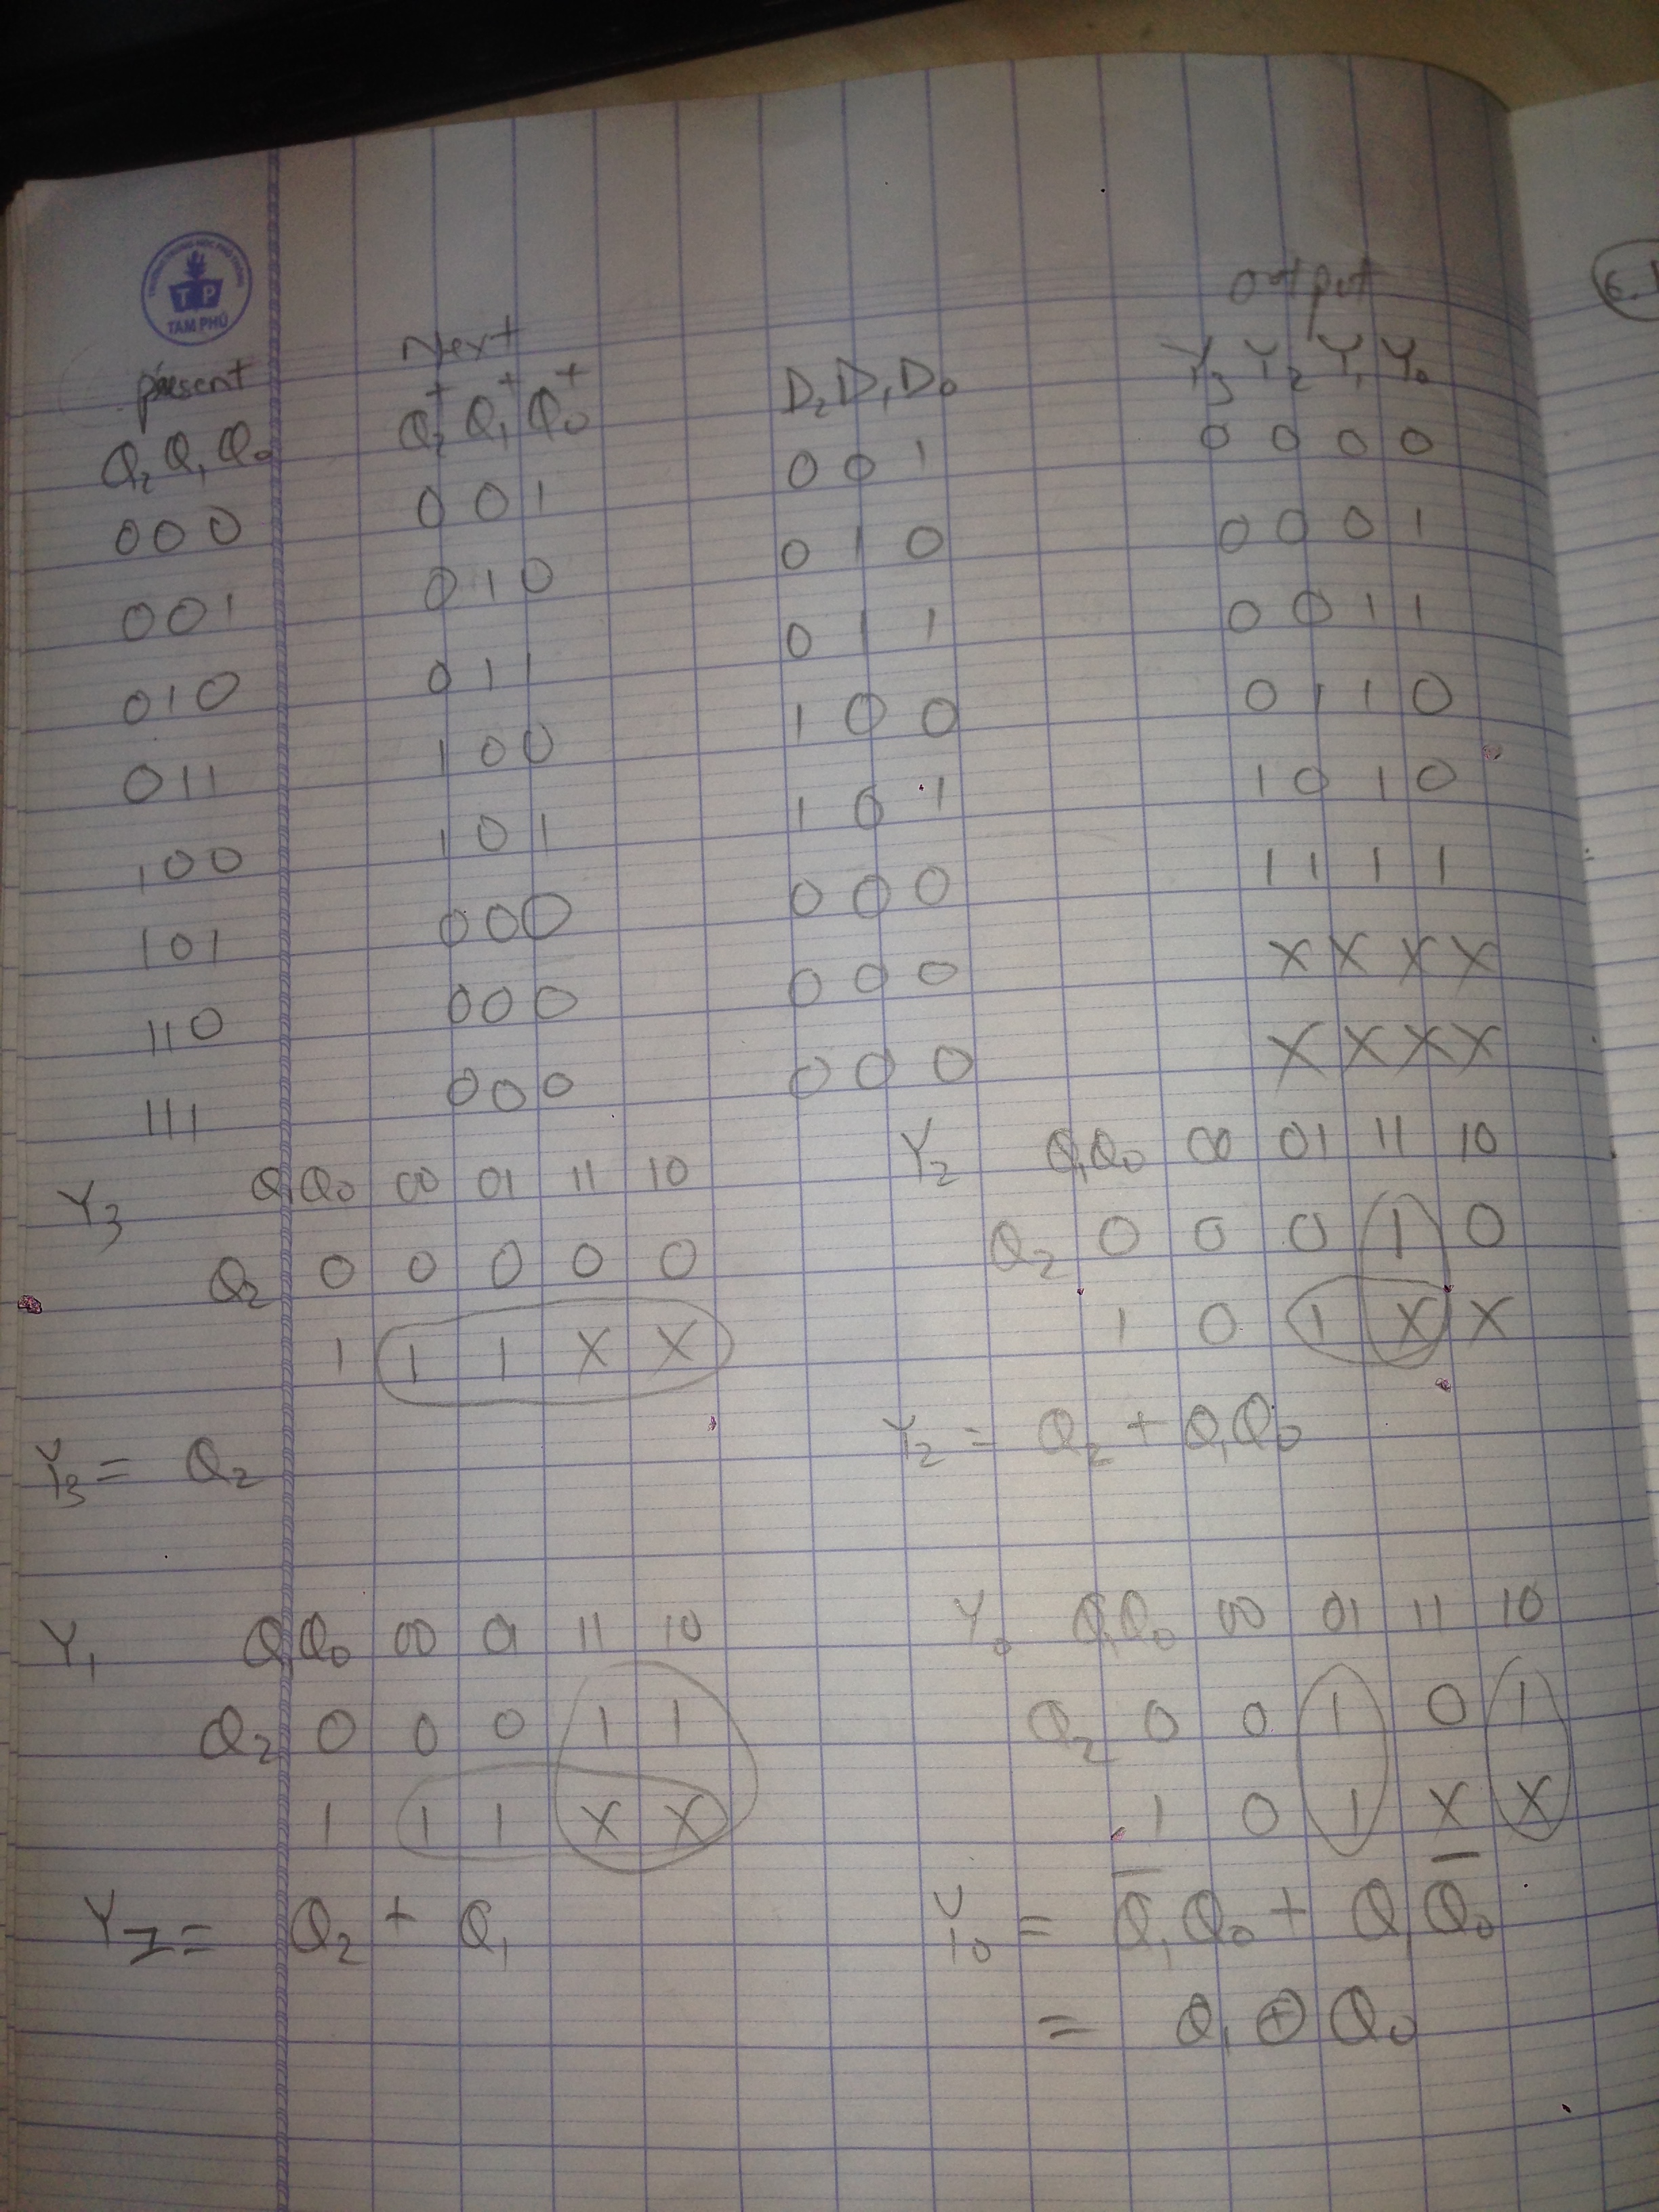 TRƯỜNG TRUNG HỌC PHỔ THÔNG
TP
TAM PHÚ
present Next output
Q₂ Q₁ Q₀ Q₂⁺ Q₁⁺ Q₀⁺ D₂ D₁ D₀ Y₃ Y₂ Y₁ Y₀
000 001 001 0000
001 010 010 0001
010 011 011 0011
011 100 100 0110
100 101 101 1010
101 000 000 1111
110 000 000 XXXX
111 000 000 XXXX
Y₃ Q₁Q₀ 00 01 11 10
Q₂ 0 0 0 0 0
1 1 1 X X
Y₃ = Q₂
Y₂ Q₁Q₀ 00 01 11 10
Q₂ 0 0 0 1 0
1 0 1 X X
Y₂ = Q₂ + Q₁Q₀
Y₁ Q₁Q₀ 00 01 11 10
Q₂ 0 0 0 1 1
1 1 1 X X
Y₁ = Q₂ + Q₁
Y₀ Q₁Q₀ 00 01 11 10
Q₂ 0 0 1 0 1
1 0 1 X X
Y₀ = Q̅₁Q₀ + Q₁Q̅₀
= Q₁ ⊕ Q₀